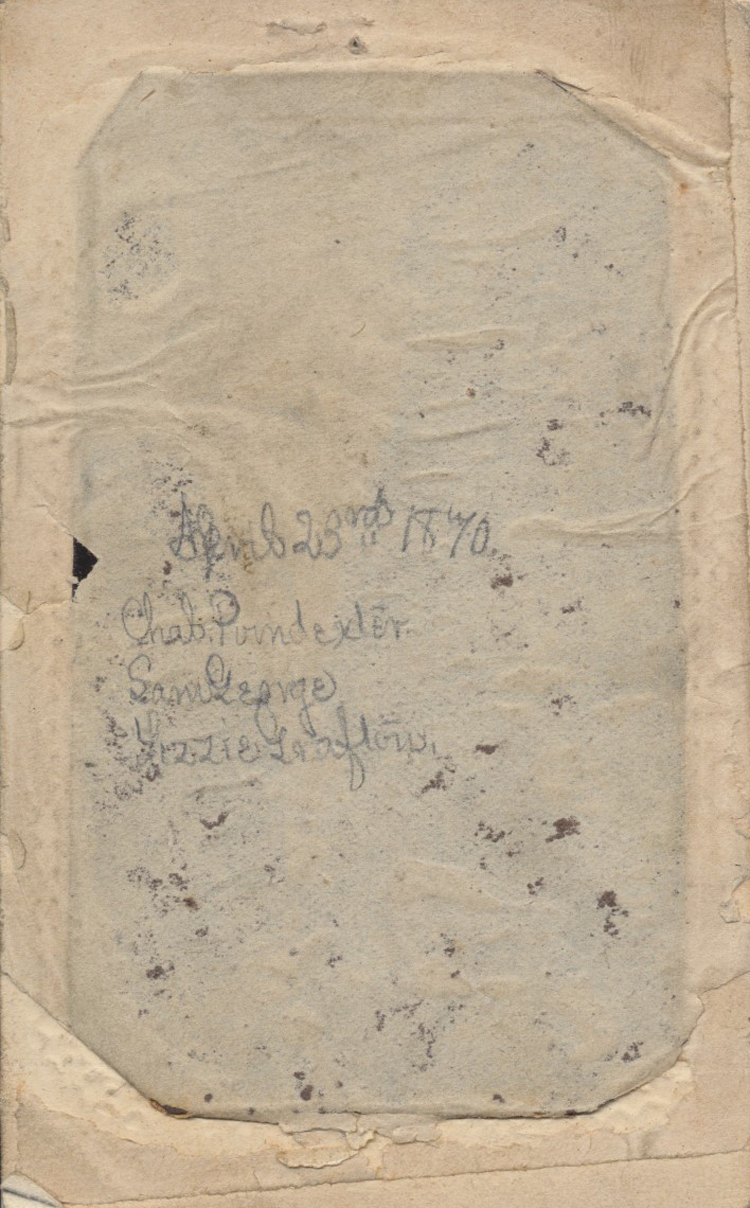 April 23rd 1870.
Chas. Poindexter.
Sam George
Lizzie Graflow.